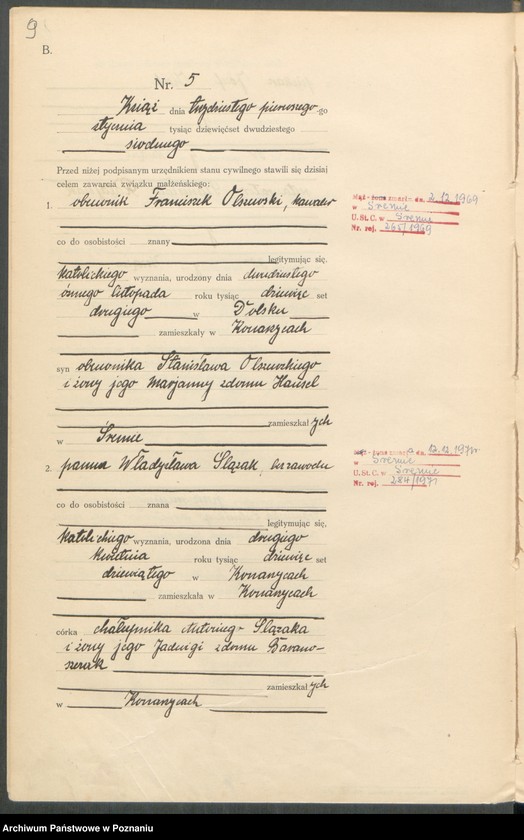 9
B.
Nr. 5
Książ dnia trzydziestego pierwszego -go
stycznia tysiąc dziewięćset dwudziestego
siódmego
Przed niżej podpisanym urzędnikiem stanu cywilnego stawili się dzisiaj
celem zawarcia związku małżeńskiego:
1. obuwnik Franciszek Olszewski, kawaler
co do osobistości znany
legitymując się,
katolickiego wyznania, urodzony dnia dwudziestego
ósmego listopada roku tysiąc dziewięć set
drugiego w Dolsku
zamieszkały w Konarzycach
syn obuwnika Stanisława Olszewskiego
i żony jego Marjanny zdomu
zamieszkał ych
w Śremie
2. panna Władysława Ślązak, bez zawodu
co do osobistości znana
legitymując się,
katolickiego wyznania, urodzona dnia drugiego
kwietnia roku tysiąc dziewięć set
dziewiątego w Konarzycach
zamieszkała w Konarzycach
córka chałupnika Ślązaka
i żony jego Jadwigi zdomu
zamieszkał ych
w Konarzycach
mąż - żona zmarł dn. 2.12.1969
w Śremie
U. St. C. w Śremie
Nr. rej. 265/1969
mąż - żona zmarł a dn. 12.12.1971r
w Śremie
U. St. C. w Śremie
Nr. rej. 284/1971
Archiwum Państwowe w Poznaniu